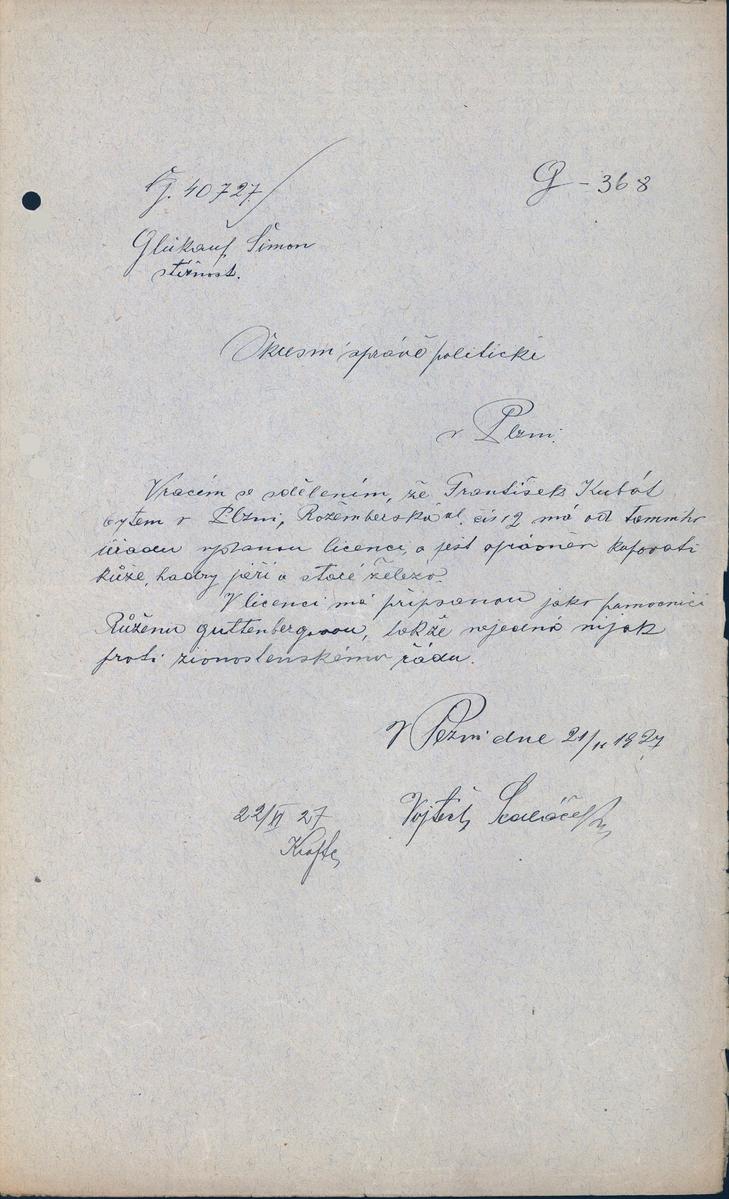 Čj. 40727/
G - 368
Glükauf Šimon
stížnost.
Okresní správě politické
v Plzni.
Vracím se sdělením, že František Kubát
bytem v Plzni, Rožemberská ul. čís 2 má od tammtr
úřadu vydanou licenci a jest oprávněn kupovati
kůže, hadry peří a staré železo.
V licenci má připsanou jako pamocnici
Růženu guttenbergovou, takže nejedná nijak
proti živnostenskému řádu.
V Plzni dne 21/VI 1927
Vojtěch
22/VI 27